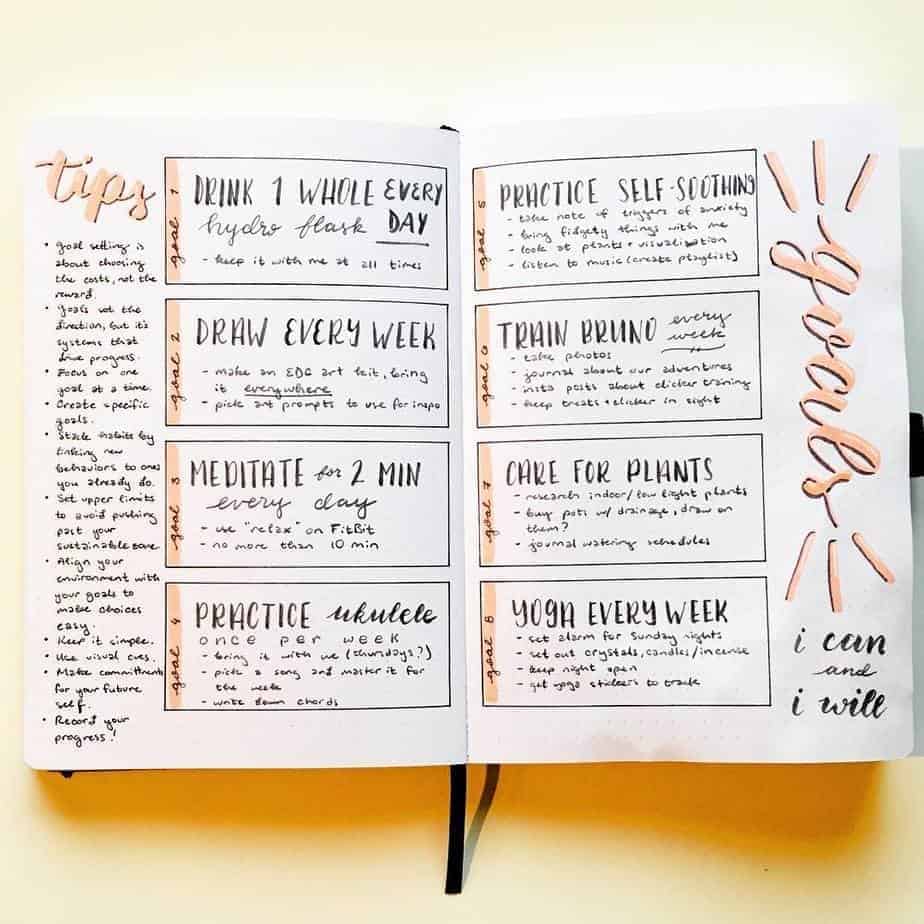 tips
• Goal setting is
about choosing
the costs, not the
reward.
• Goals set the
direction, but it's
systems that
drive progress.
• Focus on one
goal at a time.
• Create specific
goals.
• Stack habits by
linking new
behaviors to ones
you already do.
• Set upper limits
to avoid pushing
past your
sustainable zone
• Align your
environment with
your goals to
make choices
easy.
• Keep it simple.
• Use visual cues.
• Make commitments
for your future
self.
• Record your
progress!
goal 1
DRINK 1 WHOLE EVERY
hydro flask DAY
- keep it with me at all times
goal 2
DRAW EVERY WEEK
- make an EDC art kit, bring
it everywhere
- pick art prompts to use for inspo
goal 3
MEDITATE for 2 MIN
every day
- use "relax" on FitBit
- no more than 10 min
goal 4
PRACTICE ukulele
once per week
- bring it with me (thursdays?)
- pick a song and master it for
the week
- write down chords
goal 5
PRACTICE SELF-SOOTHING
- take note of triggers of anxiety
- bring fidgety things with me
- look at plants + visualization
- listen to music (create playlist)
goal 6
TRAIN BRUNO every
week
- take photos
- journal about our adventures
- insta posts about clicker training
- keep treats + clicker in sight
goal 7
CARE FOR PLANTS
- research indoor/low light plants
- buy pots w/ drainage, draw on
them?
- journal watering schedules
goal 8
YOGA EVERY WEEK
- set alarm for Sunday nights
- set out crystals, candles/incense
- keep night open
- get yoga stickers to track
goals
i can
and
i will